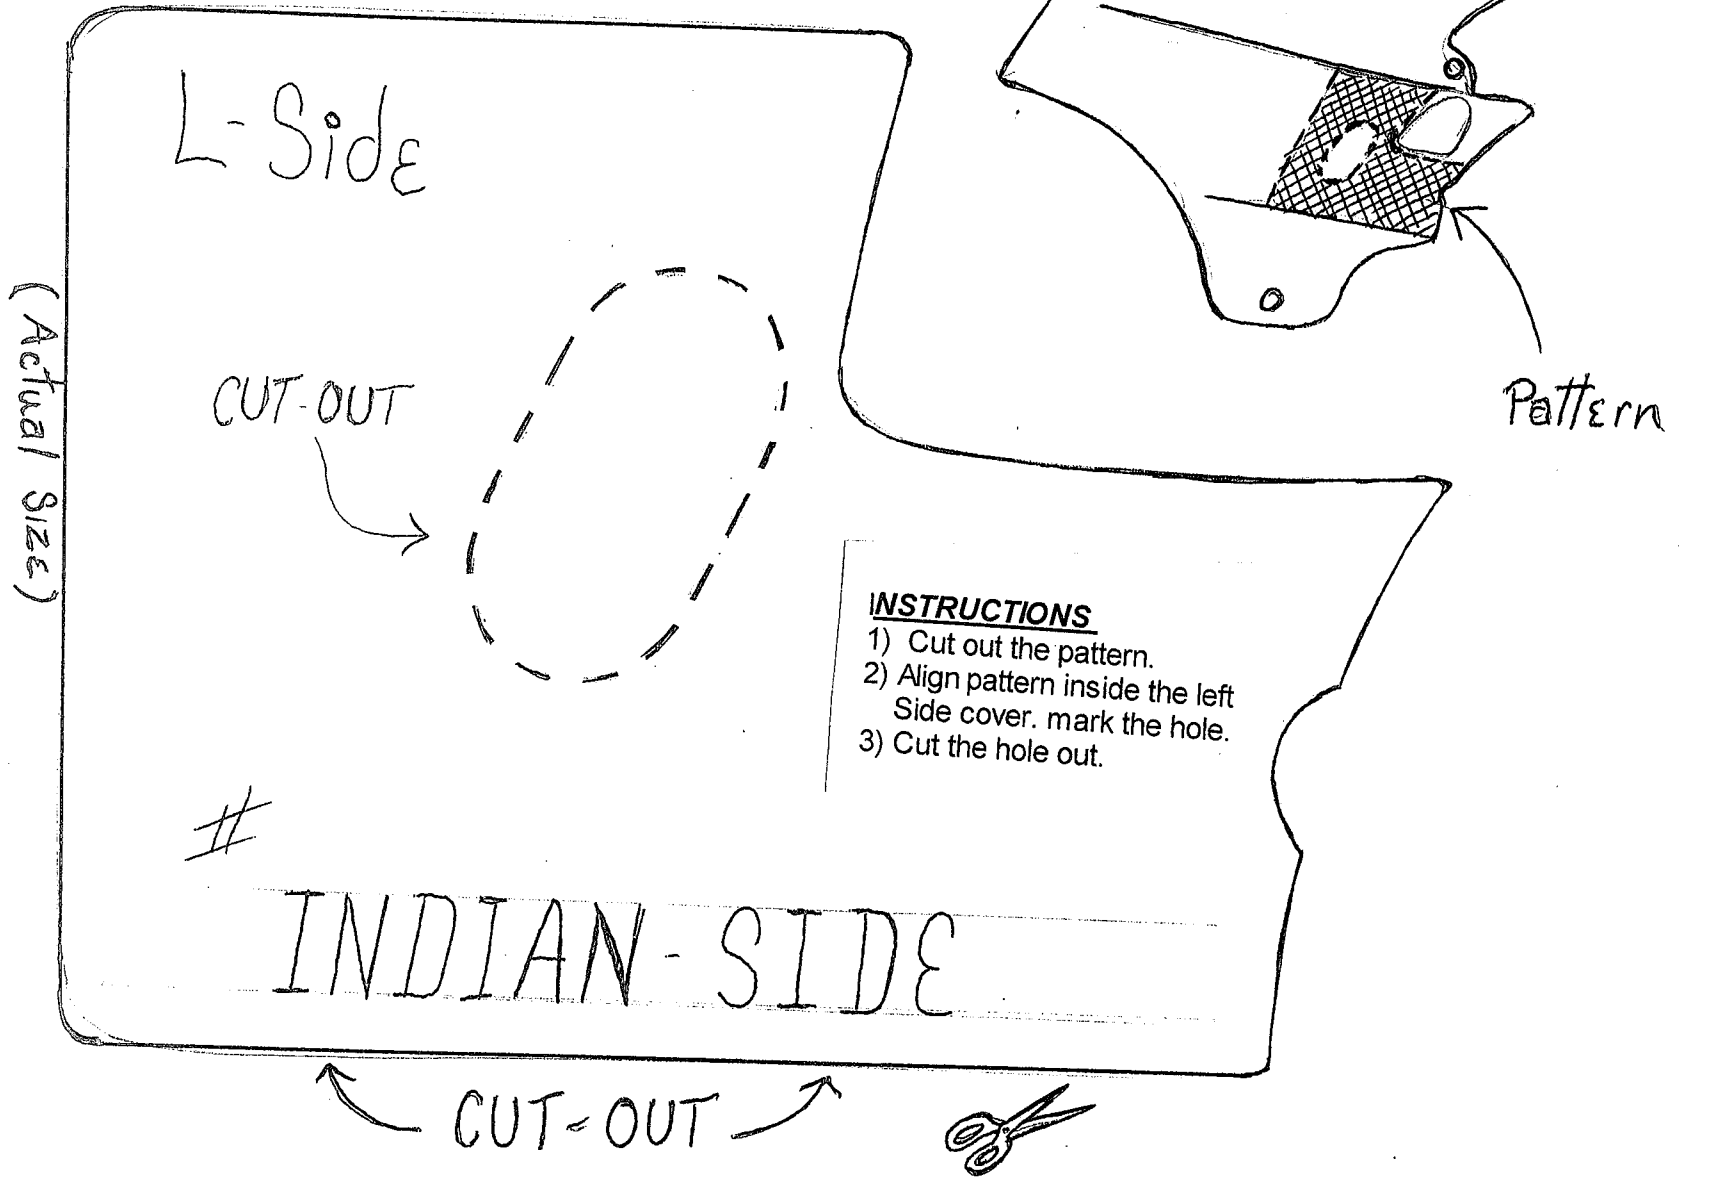 L-Side
Pattern
CUT-OUT
(Actual SIZE)
INSTRUCTIONS
1) Cut out the pattern.
2) Align pattern inside the left
Side cover. mark the hole.
3) Cut the hole out.
#
INDIAN-SIDE
CUT-OUT